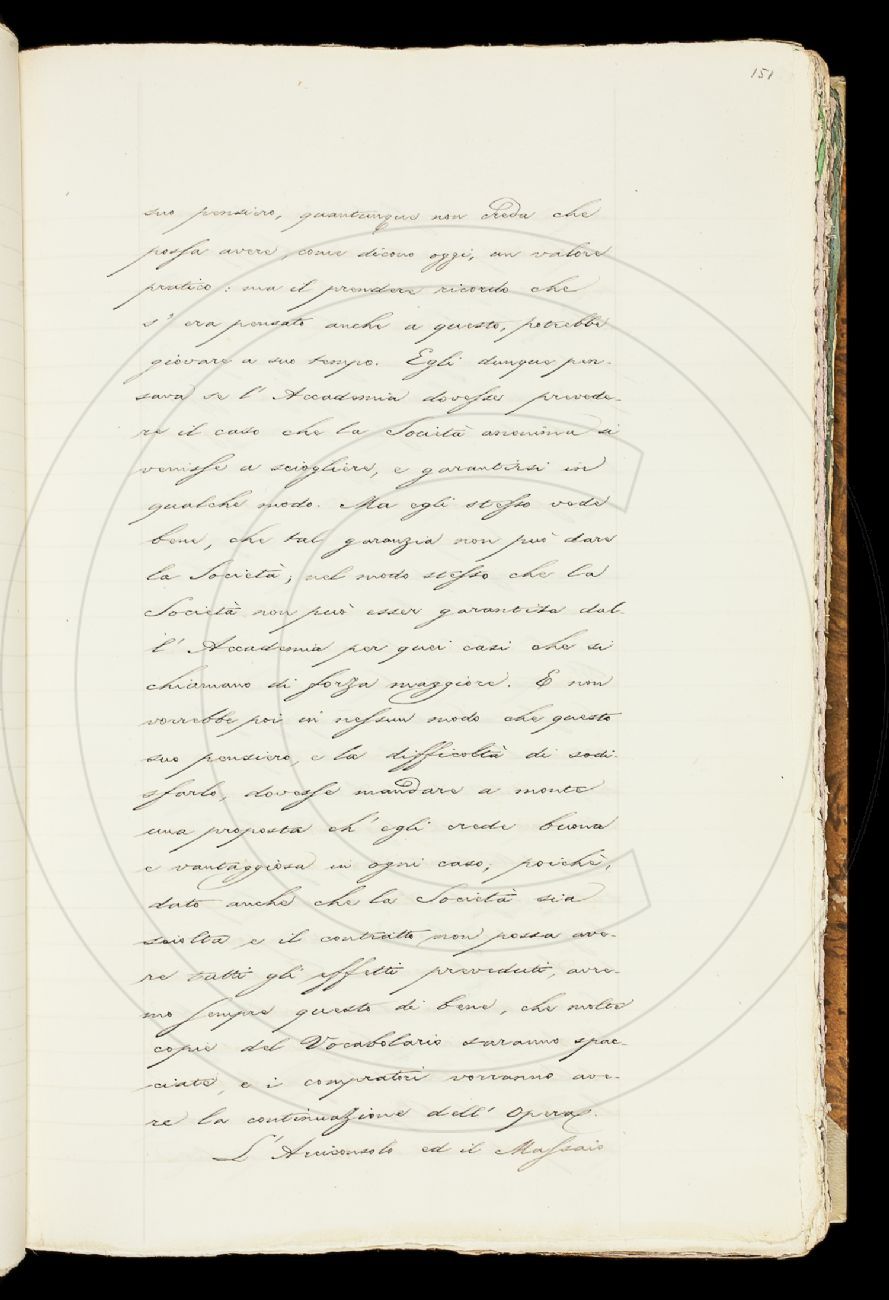 151
suo pensiero, quantunque non creda che
possa avere, come dicono oggi, un valore
pratico: ma il prendere ricordo che
s' era pensato anche a questo, potrebbe
giovare a suo tempo. Egli dunque pen-
sava se l' Accademia dovesse prevede-
re il caso che la Società anonima si
venisse a sciogliere, e garantirsi in
qualche modo. Ma egli stesso vede
bene, che tal garanzia non può dare
la Società; nel modo stesso che la
Società non può esser garantita dal-
l' Accademia per quei casi che si
chiamano di forza maggiore. E non
vorrebbe poi in nessun modo che questo
suo pensiero, e la difficoltà di sodi-
sfarlo, dovesse mandare a monte
una proposta ch' egli crede buona
e vantaggiosa in ogni caso; poichè,
dato anche che la Società sia
sciolta e il contratto non possa ave-
re tutti gli effetti preveduti, avre-
mo sempre questo di bene, che molte
copie del Vocabolario saranno spac-
ciate, e i compratori vorranno ave-
re la continuazione dell' Opera.
L' Arciconsolo ed il Massaio